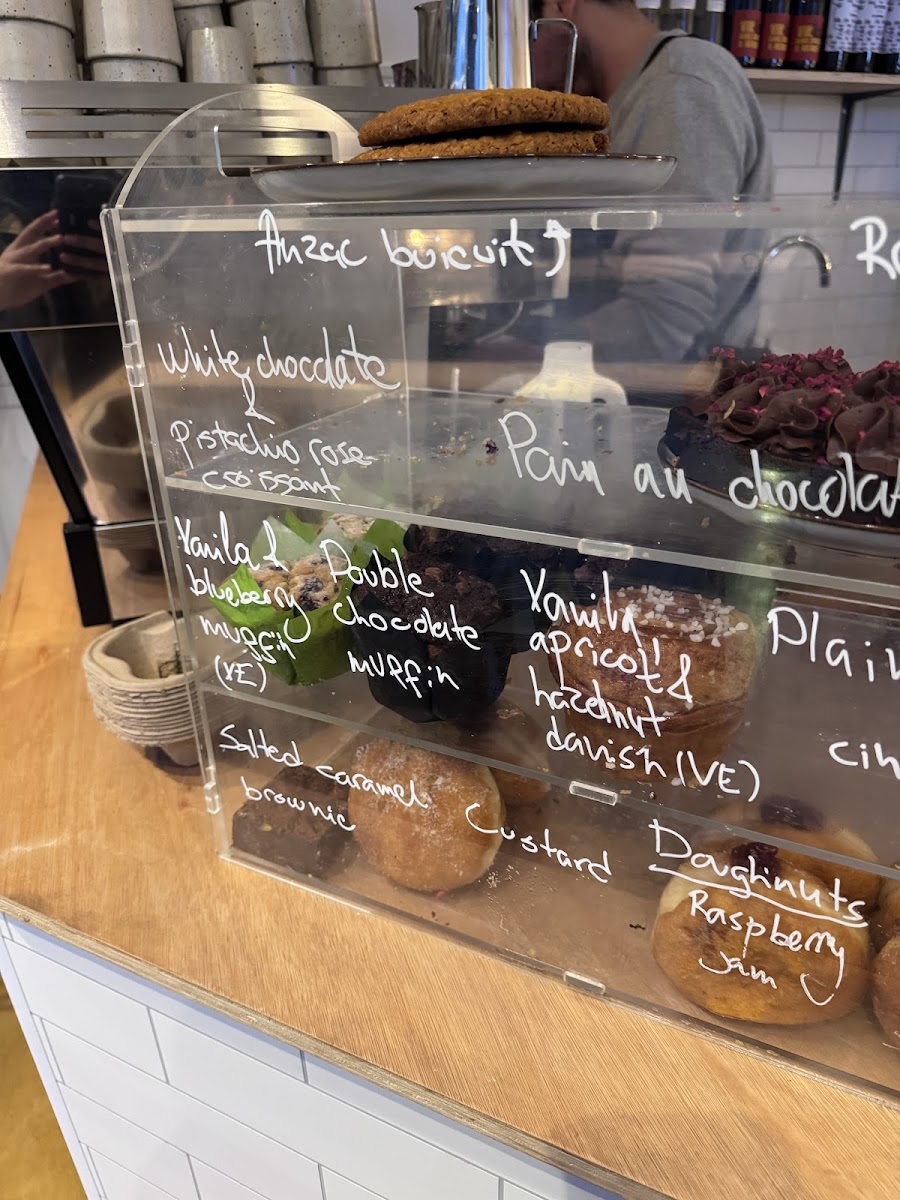 Anzac buicuit
White chocolate
&
pistachio rose
croissant
Pain au chocolat
Vanila &
blueberry
muffin
(VE)
Double
chocolate
muffin
Vanily
apricot &
hazelnut
danish (VE)
Plain
Salted caramel
brownie
Custard
Doughnuts
Raspberry
jam